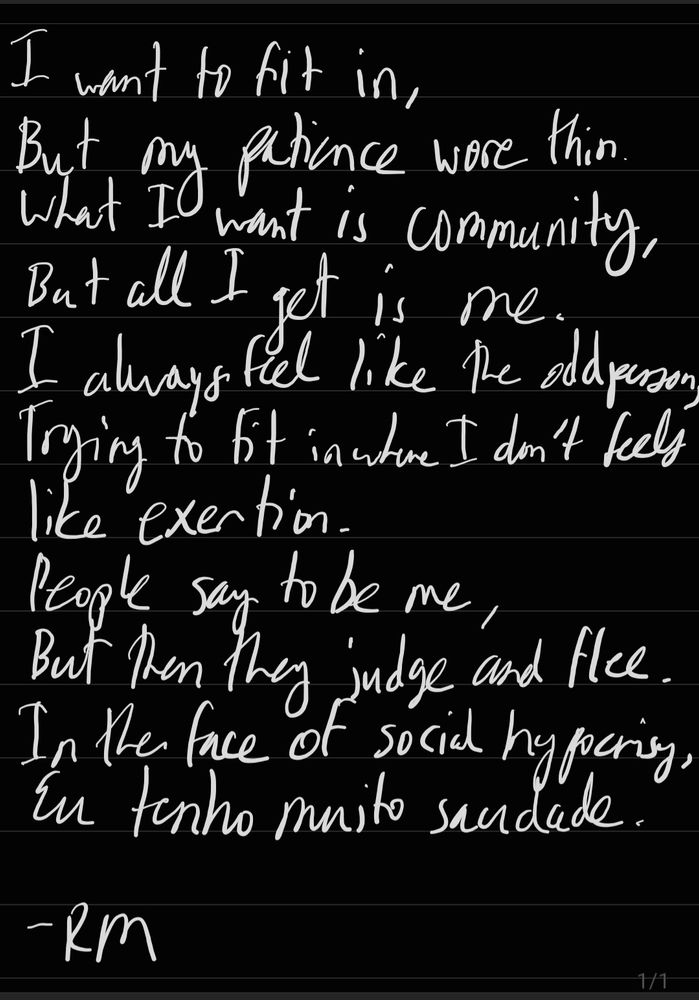 I want to fit in,
But my patience wore thin.
What I want is community,
But all I get is me.
I always feel like the odd person,
Trying to fit in where I don't feels
like exertion.
People say to be me,
But then they judge and flee.
In the face of social hypocrisy,
Eu tenho muito saudade.
-RM
1/1